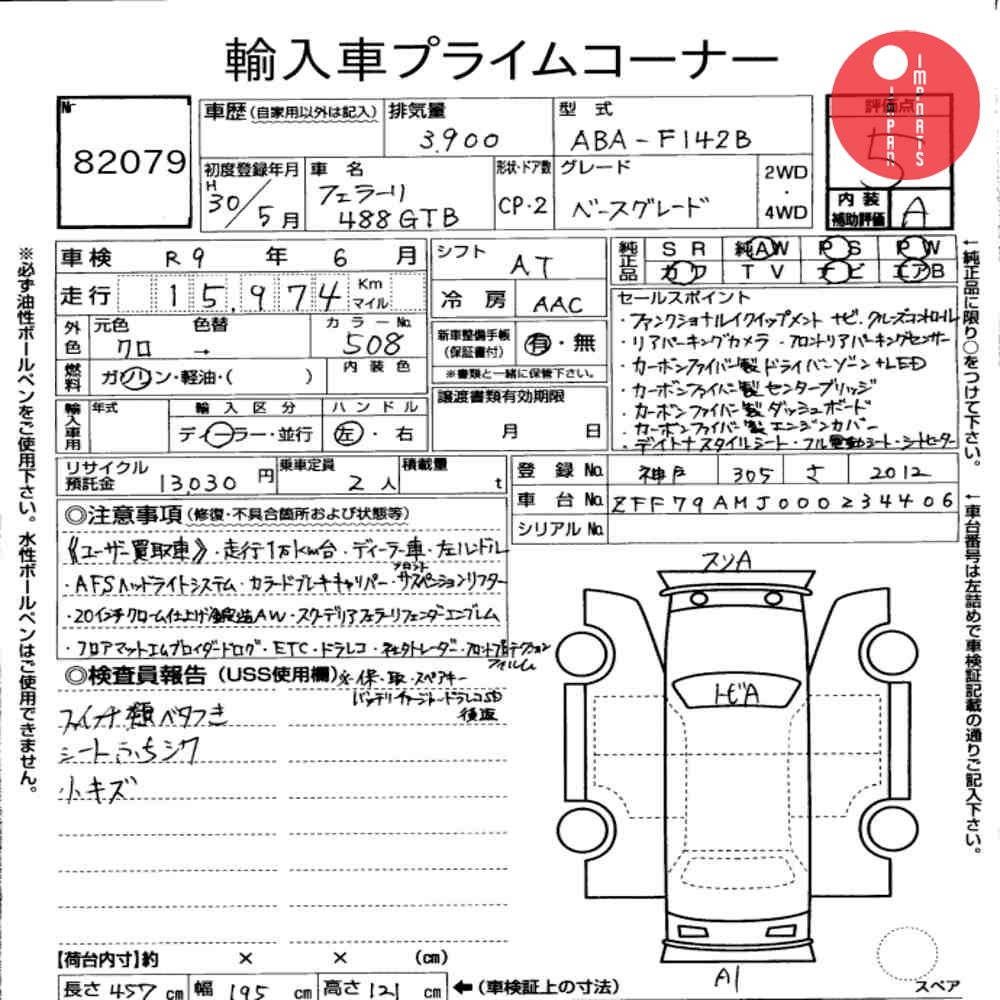 輸入車プライムコーナー
IMPARTS JAPAN
№ 82079
車歴(自家用以外は記入)
排気量 3.900
型式 ABA-F142B
評価点 5
初度登録年月 H 30/5月
車名 フェラーリ 488GTB
形状・ドア数 CP・2
グレード ベースグレード
2WD・4WD
内装補助評価 A
車検 R9年6月
シフト AT
純正品 SR 純AW PS PW
カワ TV ナビ エアB
走行 15,974 Km マイル
冷房 AAC
セールスポイント
・ファンクショナルイクイップメント ナビ.クルーズコントロール
・リアパーキングカメラ・フロントリアパーキングセンサー
・カーボンファイバー製ドライバーゾーン+LED
・カーボンファイバー製センターブリッジ
・カーボンファイバー製ダッシュボード
・カーボンファイバー製エンジンカバー
・デイトナスタイルシート・フル電動シート・シートヒーター
外色 元色 クロ 色替 → カラーNo. 508
新車整備手帳(保証書付) 有・無
※書類と一緒に保管下さい。
燃料 ガソリン・軽油・( )
内装色
輸入車用 年式
輸入区分 ディーラー・並行
ハンドル 左・右
譲渡書類有効期限
月 日
リサイクル預託金 13,030円
乗車定員 2人
積載量 t
登録No. 神戸 305 さ 2012
車台No. ZFF79AMJ000234406
シリアルNo.
◎注意事項(修復・不具合箇所および状態等)
《ユーザー買取車》・走行1万km台・ディーラー車・左ハンドル
・AFSヘッドライトシステム・カラードブレーキキャリパー・フロントサスペンションリフター
・20インチクローム仕上げ鍛造AW・スクーデリアフェラーリフェンダーエンブレム
・フロアマットエムブロイダードロゴ・ETC・ドラレコ・ネクトレーダー・フロントプロテクションフィルム
◎検査員報告(USS使用欄)
※保・取・スペアキー
バッテリーチャージャー・ドラレコSD
後送
スイッチ類ベタつき
シートふちシワ
小キズ
スリA
トビA
A1
【荷台内寸】約 × × (cm)
長さ 457 cm 幅 195 cm 高さ 121 cm ←(車検証上の寸法)
スペア
※必ず油性ボールペンをご使用下さい。水性ボールペンはご使用できません。
↑純正品に限り○をつけて下さい。
↑車台番号は左詰めで車検証記載の通りご記入下さい。